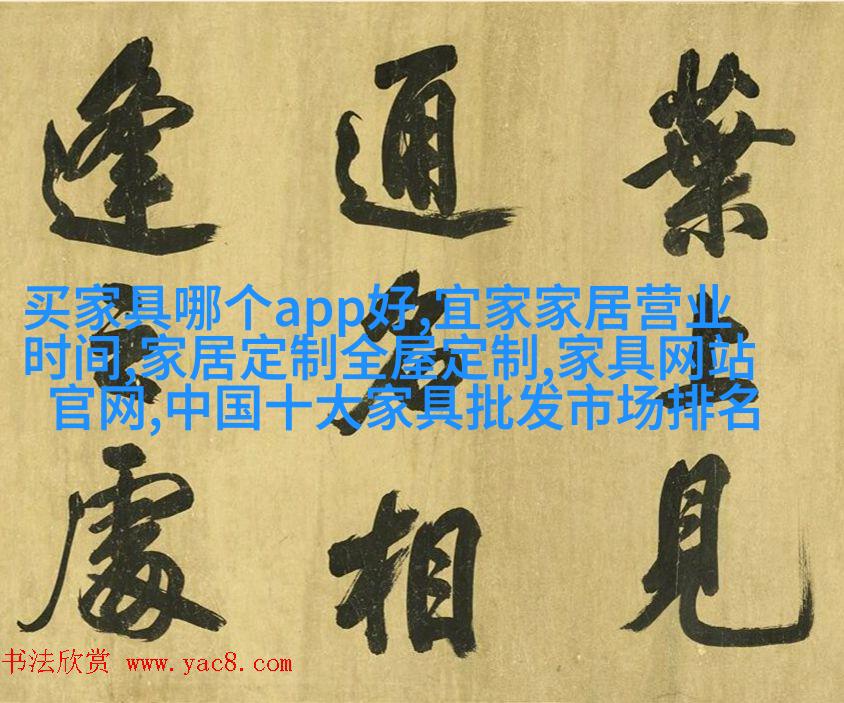 葉上見
通名相
逢處
买家具哪个app好,宜家家居营业
时间,家居定制全屋定制,家具网站
官网,中国十大家具批发市场排名
书法欣赏 www.yac8.com